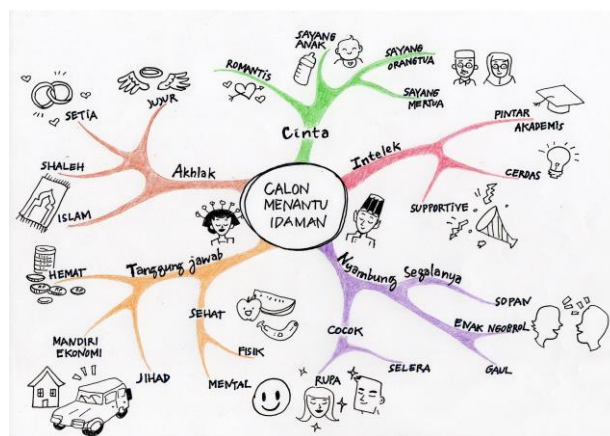 CALON
MENANTU
IDAMAN
Cinta
ROMANTIS
SAYANG
ANAK
SAYANG
ORANGTUA
SAYANG
MERTUA
Intelek
PINTAR
AKADEMIS
CERDAS
SUPPORTIVE
Nyambung Segalanya
SOPAN
ENAK NGOBROL
GAUL
COCOK
SELERA
RUPA
Tanggung jawab
SEHAT
FISIK
MENTAL
JIHAD
MANDIRI
EKONOMI
HEMAT
Akhlak
ISLAM
SHALEH
SETIA
JUJUR